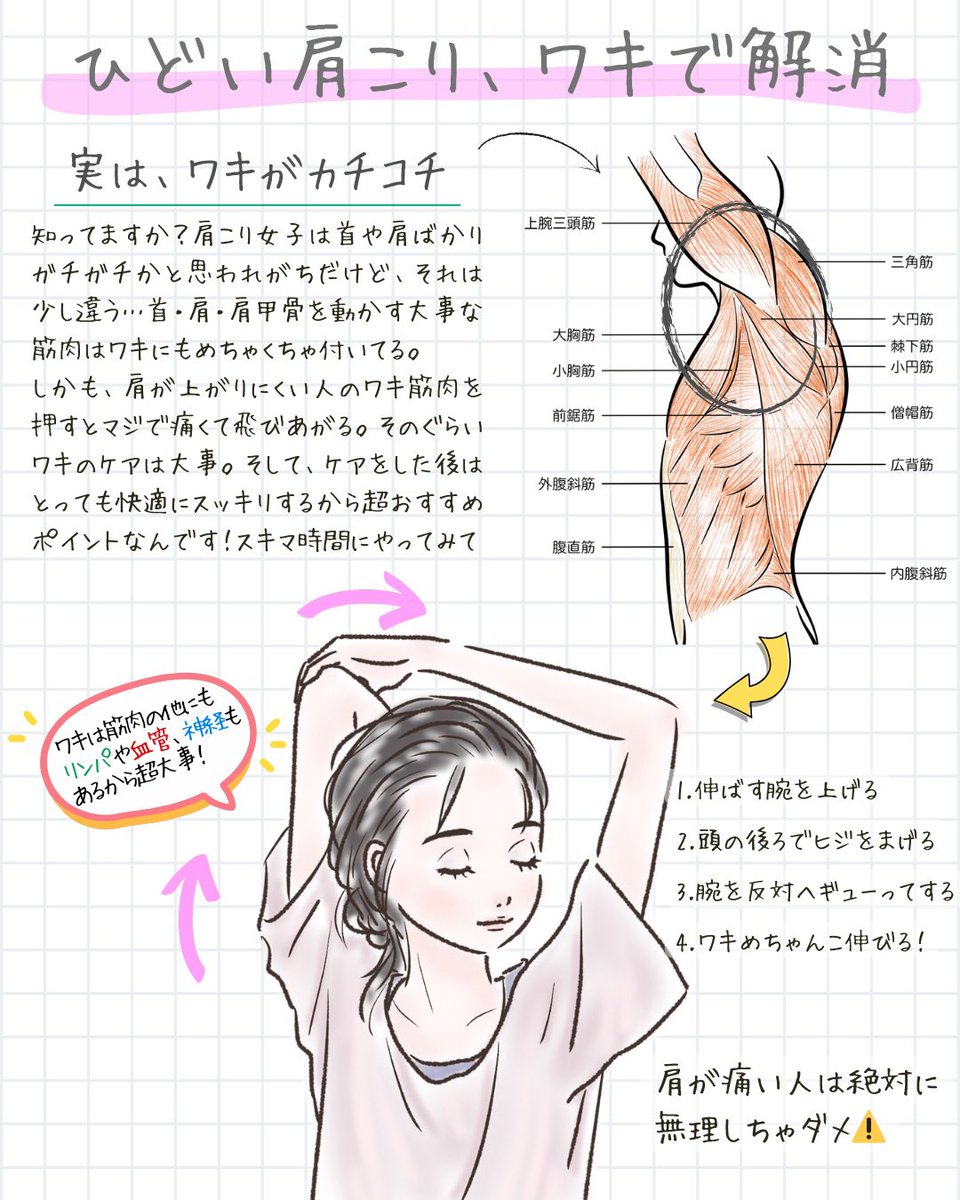 ひどい肩こり、ワキで解消
実は、ワキがカチコチ
知ってますか？肩こり女子は首や肩ばかり
ガチガチかと思われがちだけど、それは
少し違う…首・肩・肩甲骨を動かす大事な
筋肉はワキにもめちゃくちゃ付いてる。
しかも、肩が上がりにくい人のワキ筋肉を
押すとマジで痛くて飛びあがる。そのぐらい
ワキのケアは大事。そして、ケアをした後は
とっても快適にスッキリするから超おすすめ
ポイントなんです！スキマ時間にやってみて
上腕三頭筋
大胸筋
小胸筋
前鋸筋
外腹斜筋
腹直筋
三角筋
大円筋
棘下筋
小円筋
僧帽筋
広背筋
内腹斜筋
ワキは筋肉の他にも
リンパや血管、神経も
あるから超大事！
1.伸ばす腕を上げる
2.頭の後ろでヒジをまげる
3.腕を反対へギューってする
4.ワキめちゃんこ伸びる！
肩が痛い人は絶対に
無理しちゃダメ⚠️